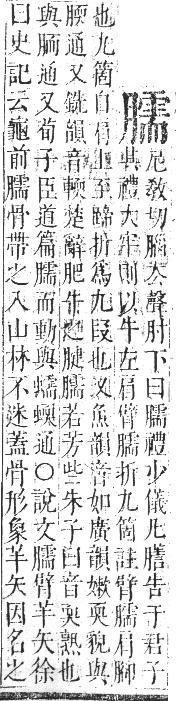 臑
尼敎切腦去聲肘下曰臑禮少儀凡膳告于君子
其禮大牢則以牛左肩臂臑折九箇註臂臑肩脚
也九箇自肩上至蹄折爲九段也又魚韻音如廣韻嫩耎貌與
腝通又銑韻音輭楚辭肥牛之腱臑若芳些朱子曰音耎熟也
與胹通又荀子臣道篇臑而動與蠕蝡通○說文臑臂羊矢徐
曰史記云龜前臑骨帶之入山林不迷蓋骨形象羊矢因名之